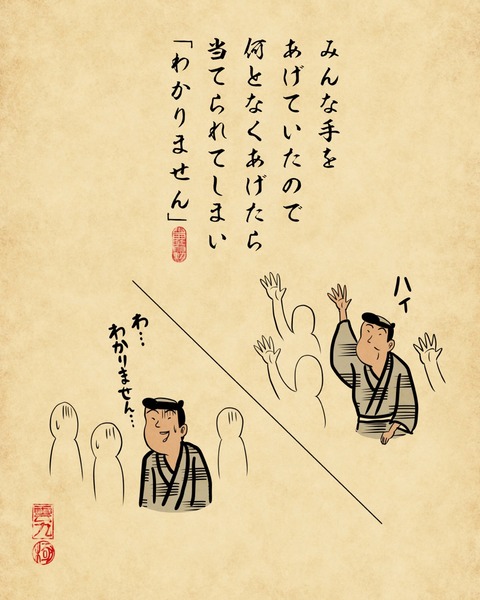 みんな手を
あげていたので
何となくあげたら
当てられてしまい
「わかりません」
ハイ
わ…
わかりません…